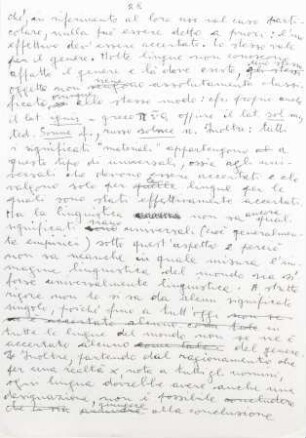 28
che, in riferimento al loro uso nel caso parti-
colare, nulla può essere detto a priori: l'un
effettivo dev'essere accertato. Lo stesso vale
per il genere. Molte lingue non conoscono
affatto il genere e là dove esiste, gli stessi
oggetti non vengono assolutamente classi-
ficati allo stesso modo: cfr. proprio
il lat. ignis – greco πῦρ oppure il lat. sol
ted. Sonne f., russo solnce n. Inoltre: tutti
i significati "materiali" appartengono a
questo tipo di universali, ossia agli uni-
versali che devono essere accertati e che
valgono solo per quelle lingue per le
quali sono stati effettivamente accertati.
Ma la linguistica non sa quali
significati siano universali (cioè generalmen-
te empirici) sotto quest'aspetto e perciò
non sa neanche in quale misura l'im-
magine linguistica del mondo sia
forse universalmente linguistica. A stretto
rigore non lo si sa da alcun significato
singolo, poiché fino a tutt'oggi
tutte le lingue del mondo non se ne è
accertato alcuno del genere.
Inoltre, partendo dal ragionamento che
per una realtà x, nota a tutti gli uomini,
ogni lingua dovrebbe avere anche una
designazione, non è possibile
giungere alla conclusione